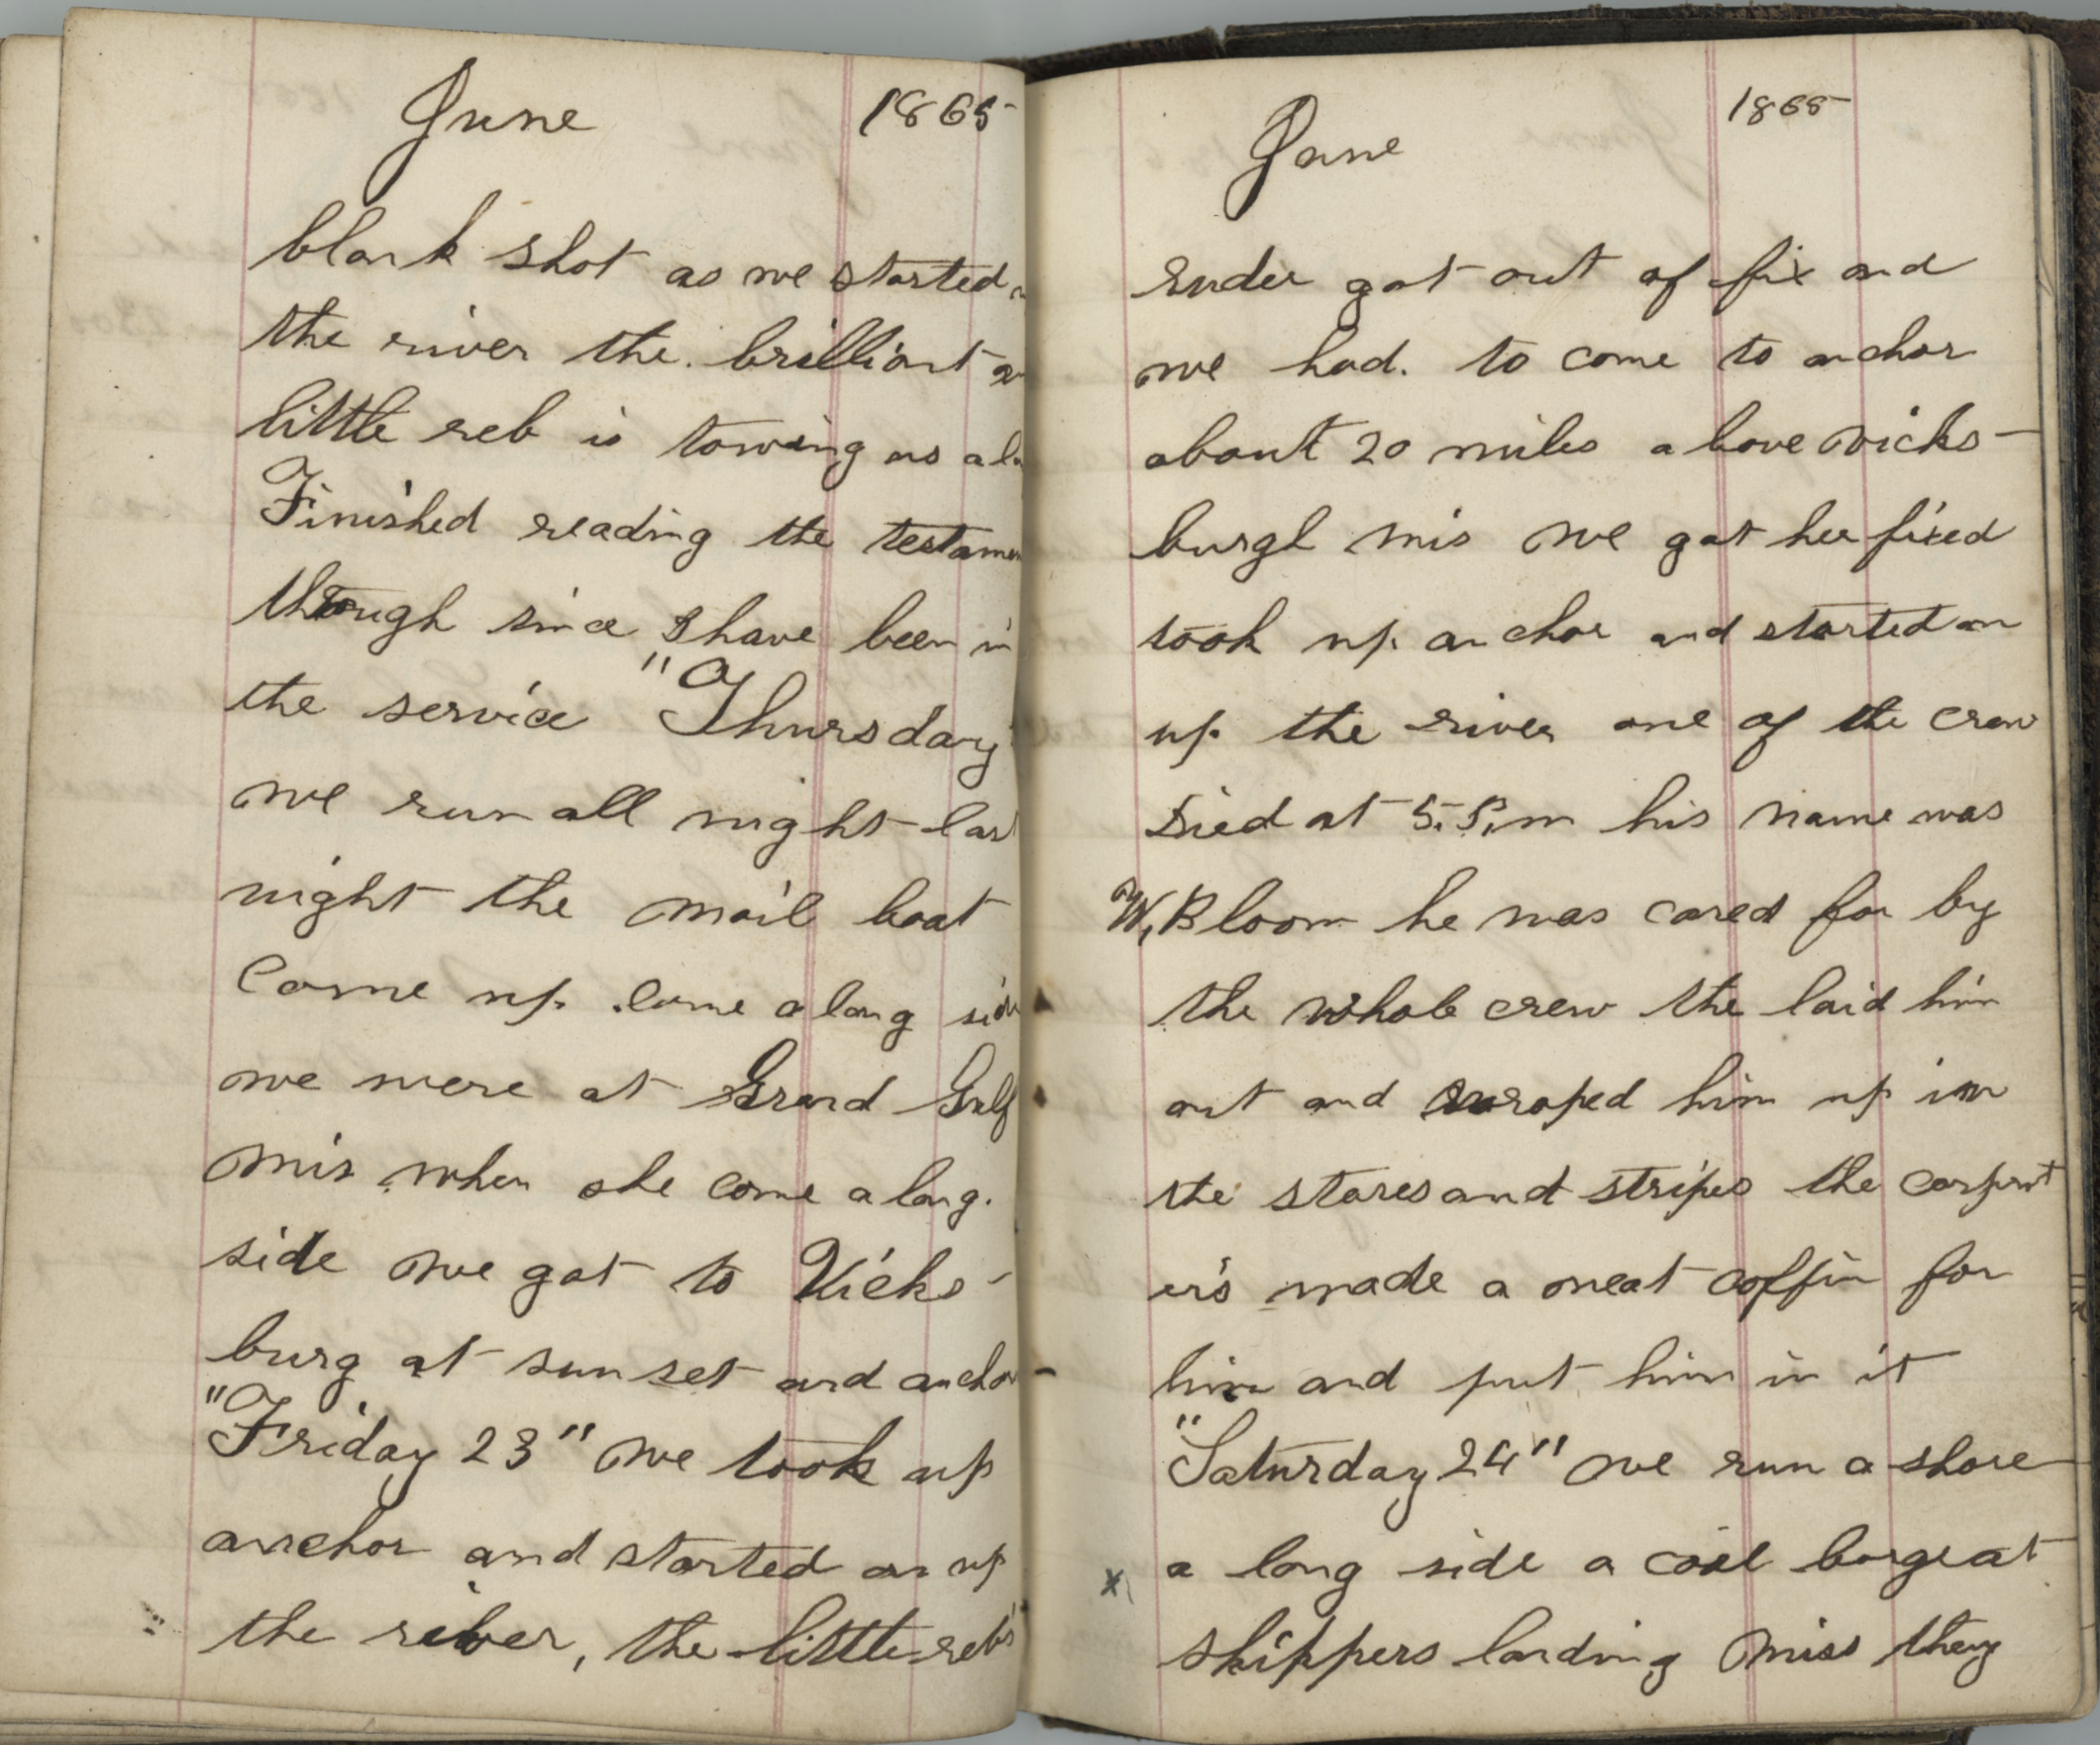 June 1865
blank shot as we started
the river the. brilliant
little reb is towing us
Finished reading the
through since I have been in
the service "Thursday
we run all night last
night the mail boat
Come up. Come a long side
we were at Grand Gulf
mis when she come a long.
side we got to Vicks-
burg at sunset and
"Friday 23" we took up
anchor and started on up
the river, the little reb's
June 1865
ruder got out of fix and
we had. to come to anchor
about 20 miles above vicks-
burgh mis we got her fixed
took up anchor and started on
up the river one of the crew
Died at 5. P,m his name was
W, Bloom he was cared for by
the whole crew the laid him
out and wraped him up in
the stares and stripes the carpent
er's made a neat coffin for
him and put him in it
"Saturday 24" we run a shore
a long side a coal barge at
skippers landing miss they
x